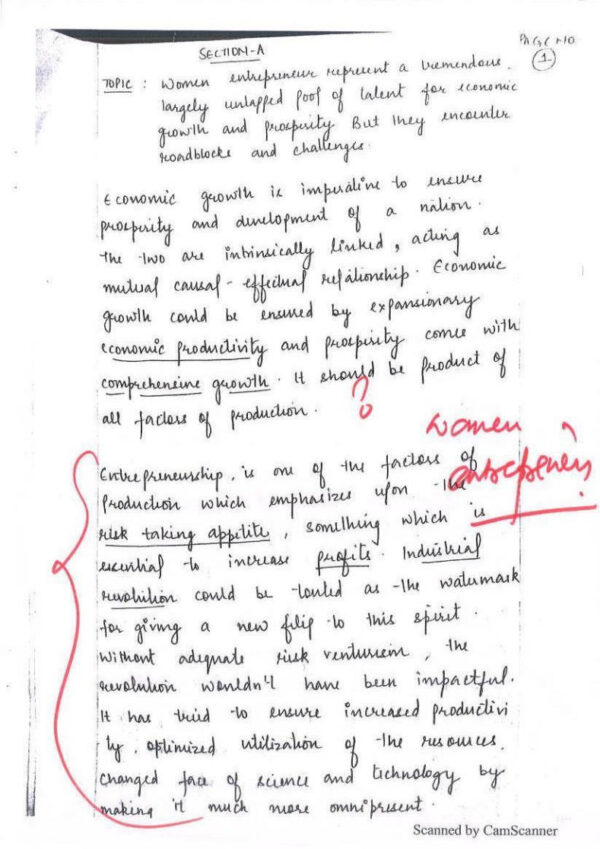 SECTION-A
PAGE NO
1
TOPIC : Women entrepreneur represent a tremendous.
largely untapped pool of talent for economic
growth and prosperity But they encounter
roadblocks and challenges.
Economic growth is imperative to ensure
prosperity and development of a nation.
The two are intrinsically linked, acting as
mutual causal-effectual relationship. Economic
growth could be ensured by expansionary
economic productivity and prosperity comes with
comprehensive growth. It should be product of
all factors of production.
?
women
entrepreneurs
Entrepreneurship, is one of the factors of
Production which emphasizes upon the
risk taking appetite, something which is
essential to increase profits. Industrial
revolution could be touted as the watermark
for giving a new filip to this spirit.
Without adequate risk venturism, the
revolution wouldn't have been impactful.
It has tried to ensure increased productivi
ty, optimized utilization of the resources,
changed face of science and technology by
making it much more omnipresent.
Scanned by CamScanner